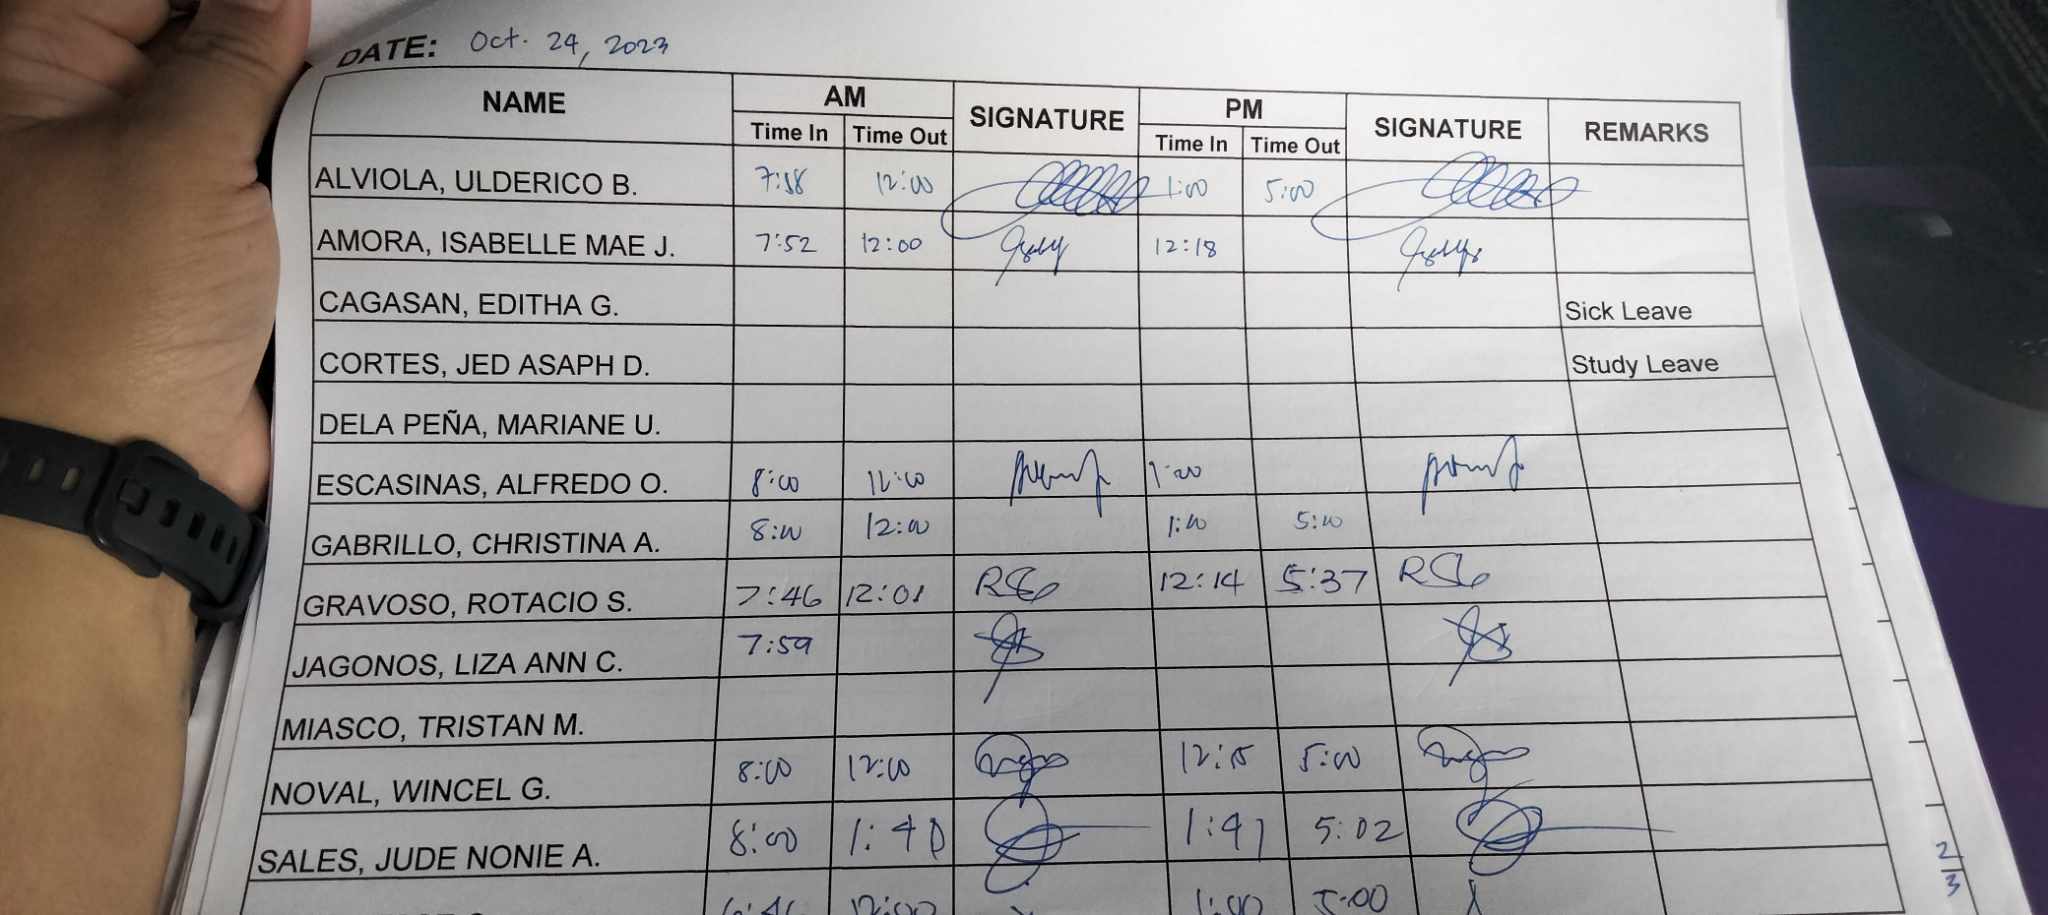 DATE: Oct. 24, 2023
NAME AM SIGNATURE PM SIGNATURE REMARKS
Time In Time Out Time In Time Out
ALVIOLA, ULDERICO B. 7:58 12:00 1:00 5:00
AMORA, ISABELLE MAE J. 7:52 12:00 12:18
CAGASAN, EDITHA G. Sick Leave
CORTES, JED ASAPH D. Study Leave
DELA PEÑA, MARIANE U.
ESCASINAS, ALFREDO O. 8:00 12:00 1:00
GABRILLO, CHRISTINA A. 8:00 12:00 1:00 5:00
GRAVOSO, ROTACIO S. 7:46 12:01 RSG 12:14 5:37 RSG
JAGONOS, LIZA ANN C. 7:59
MIASCO, TRISTAN M.
NOVAL, WINCEL G. 8:00 12:00 12:15 5:00
SALES, JUDE NONIE A. 8:00 1:40 1:41 5:02
12:00 1:00 5:00
2/3